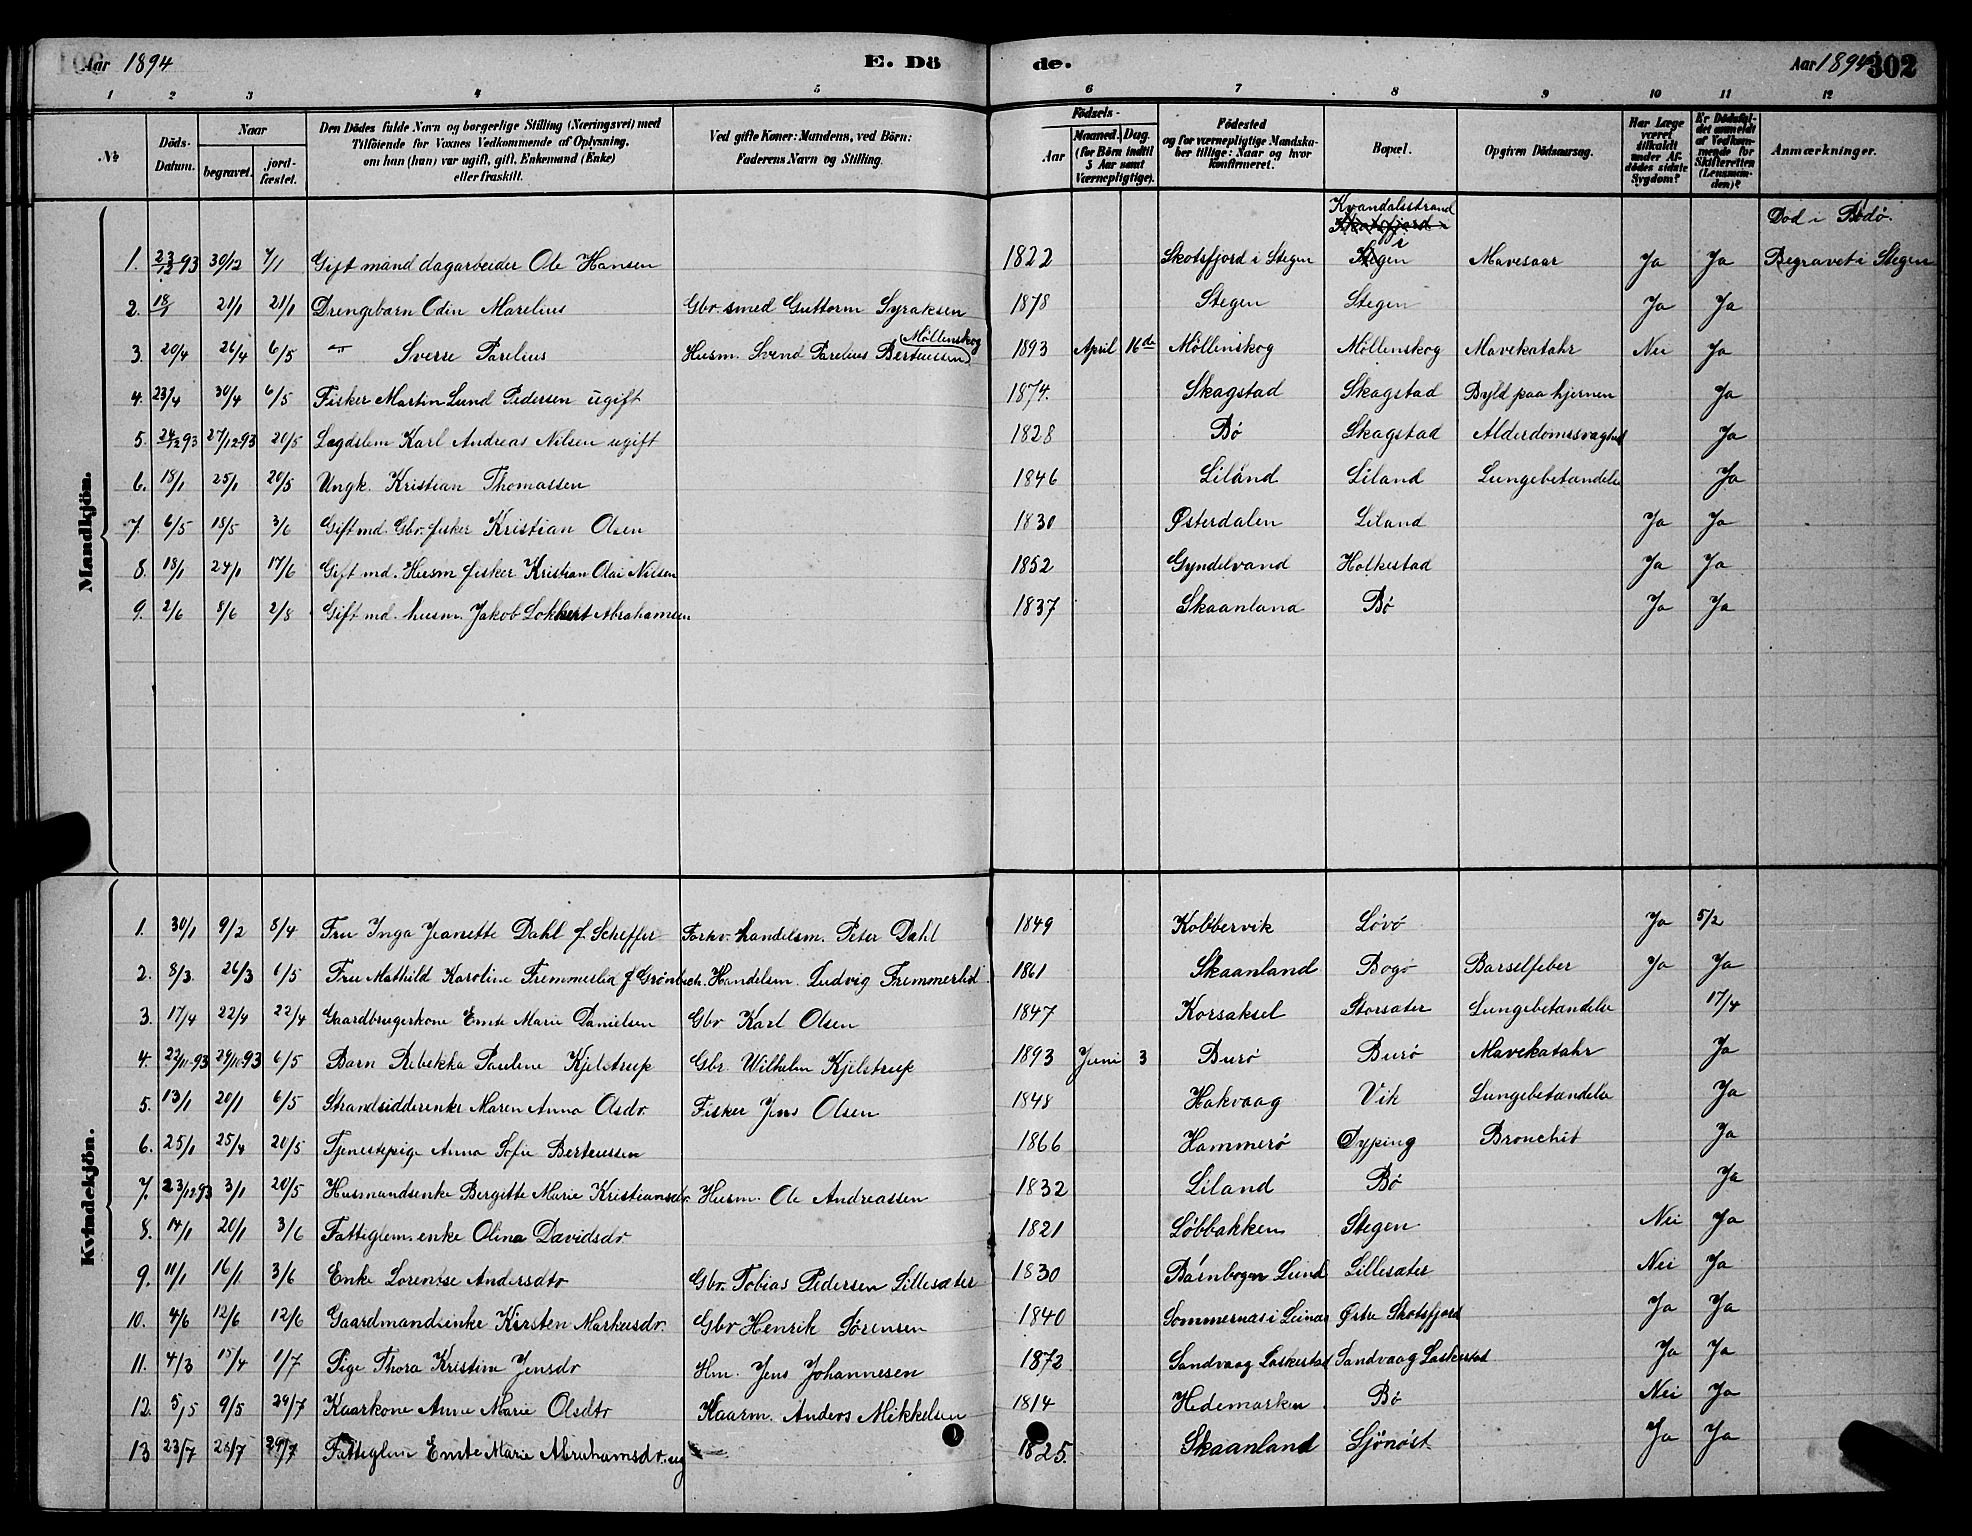 Aar 1894 E. Dö de. Aar 1894 302
1 2 3 4 5 6 7 8 9 10 11 12
№ Döds-Datum. Naar begravet. jord-fæstet. Den Dödes fulde Navn og borgerlige Stilling (Næringsvei) med Tilföiende for Voxnes Vedkommende af Oplysning, om han (hun) var ugift, gift, Enkemand (Enke) eller fraskilt. Ved gifte Koner: Mandens, ved Börn: Faderens Navn og Stilling. Födsels- Aar Maaned. Dag. (for Börn indtil 5 Aar samt Værnepligtige). Födested og for værnepligtige Mandskaber tillige: Naar og hvor konfirmeret. Bopæl. Opgiven Dödsaarsag. Har Læge været tilkaldt under Afdödes sidste Sygdom? Er Dödsfaldet anmeldt af Vedkommende for Skifteretten (Lensmanden)? Anmærkninger.
Mandkjön.
Kvandalsstrand Död i Bodö.
1. 23/12 93 30/12 7/1 Gift mand dagarbeider Ole Hansen 1822 Skotsfjord i Stegen i Stegen Mavesaar Ja Ja Begravet i Stegen
2. 18/1 21/1 21/1 Drengebarn Odin Marelius Gbr. smed Guttorm Syraksen 1878 Stegen Stegen Ja Ja
3. 20/4 26/4 6/5 -"- Sverre Parelius Husm. Svend Parelius Berteussen Möllenskog 1893 April 16de Möllenskog Möllenskog Mavekatahr Nei Ja
4. 23/4 30/4 6/5 Fisker Martin Lund Pedersen ugift 1874. Skagstad Skagstad Byld paa hjernen Ja
5. 24/12 93 27/12 93 20/5 Lægdslem Karl Andreas Nilsen ugift 1828 Bö Skagstad Alderdomssvaghed Ja
6. 18/1 25/1 20/5 Ungk. Kristian Thomassen 1846 Liland Liland Lungebetændelse Ja
7. 6/5 18/5 3/6 Gift md. Gbr. fisker Kristian Olsen 1830 Østerdalen Liland Ja Ja
8. 18/1 24/1 17/6 Gift md. Husm fisker Kristian Olai Nilsen 1852 Gyndelvand Holkestad Ja Ja
9. 2/6 8/6 2/8 Gift md. husm. Jakob Lokkert Abrahamsen 1837 Skaanland Bö Ja Ja
Kvindekjön.
1. 30/1 9/2 8/4 Fru Inga Jeanette Dahl f. Scheffer Forhv. handelsm. Peter Dahl 1849 Kobbervik Lövö Ja 5/2
2. 8/3. 26/3 6/5 Fru Mathild Karoline Fremmerlid f Grönbech. Handelsm. Ludvig Fremmerlid 1861 Skaanland Bogö Barselfeber Ja Ja
3. 17/4 22/4 22/4 Gaardbrugerkone Emte Marie Danielsen Gbr Karl Olsen 1847 Korsaksel Storsæter Lungebetændelse 17/4
4. 22/11 93 29/11 93 6/5 Barn Rebekka Pauline Kjelstrup Gbr. Wilhelm Kjelstrup 1893 Juni 3 Burö Burö Mavekatahr Ja
5. 13/1 20/1 6/5 Strandsidderenke Maren Anna Olsdr. Fisker Jens Olsen 1848 Hakvaag Vik Lungebetændelse Ja
6. 25/1 25/4 20/5 Tjenestepige Anna Sofie Berteussen 1866 Hammerö Dyping Bronchit Ja
7. 23/12 93 3/1 20/5 Husmandsenke Bergitte Marie Kristiansdr. Husm. Ole Andreassen 1832 Liland Bö Ja
8. 14/1 20/1 3/6 Fattiglem. enke Olina Davidsdr. 1821 Löbbakken Stegen Nei Ja
9. 11/1 16/1 3/6 Enke Lorentse Andersdtr Gbr. Tobias Pedersen Lillesæter 1830 Bærnbogen Lund Lillesæter Nei Ja
10. 4/6 12/6 12/6 Gaardmandsenke Kirsten Markusdr. Gbr Henrik Sörensen 1840 Sommernæs i Leinæs Østre Skotsfjord Ja Ja
11. 4/3 15/4 1/7 Pige Thora Kristine Jensdr Hm. Jens Johannesen 1872 Sandvaag Laskestad Sandvaag Laskestad Ja Ja
12. 5/5 9/5 29/7 Kaarkone Anne Marie Olsdtr Kaarm. Anders Mikkelsen 1814 Hedemarken Bö Nei Ja
13 23/7 28/7 29/7 Fattiglem Emte Marie Abrahamsdr. ug 1825. Skaanland Sjönöst Ja Ja